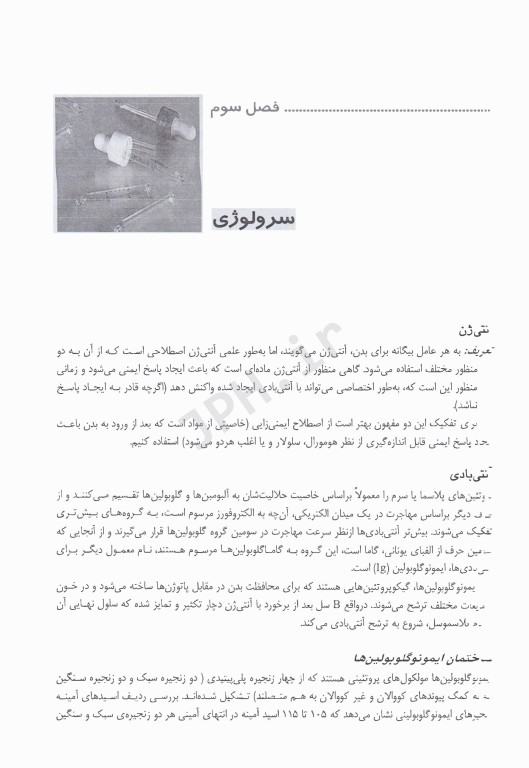 فصل سوم
سرولوژی
نتی‌ژن
تعریف: به هر عامل بیگانه برای بدن، آنتی‌ژن می‌گویند، اما به‌طور علمی آنتی‌ژن اصطلاحی است که از آن به دو
منظور مختلف استفاده می‌شود. گاهی منظور از آنتی‌ژن ماده‌ای است که باعث ایجاد پاسخ ایمنی می‌شود و زمانی
منظور این است که، به‌طور اختصاصی می‌تواند با آنتی‌بادی ایجاد شده واکنش دهد (اگرچه قادر به ایجاد پاسخ
نباشد).
برای تفکیک این دو مفهون بهتر است از اصطلاح ایمنی‌زایی (خاصیتی از مواد است که بعد از ورود به بدن باعث
پاسخ ایمنی قابل اندازه‌گیری از نظر هومورال، سلولار و یا اغلب هردو می‌شود) استفاده کنیم.
نتی‌بادی
وتئین‌های پلاسما یا سرم را معمولاً براساس خاصیت حلالیت‌شان به آلبومین‌ها و گلوبولین‌ها تقسیم می‌کنند و از
دیگر براساس مهاجرت در یک میدان الکتریکی، آن‌چه به الکتروفورز مرسوم است، به گروه‌های بیش‌تری
تفکیک می‌شوند. بیش‌تر آنتی‌بادی‌ها ازنظر سرعت مهاجرت در سومین گروه گلوبولین‌ها قرار می‌گیرند و از آنجایی که
حرف از الفبای یونانی، گاما است، این گروه به گاماگلوبولین‌ها مرسوم هستند، نام معمول دیگر برای
ایمونوگلوبولین (Ig) است.
یمونوگلوبولین‌ها، گیکوپروتئین‌هایی هستند که برای محافظت بدن در مقابل پاتوژن‌ها ساخته می‌شود و در خون
مایعات مختلف ترشح می‌شوند. درواقع B سل بعد از برخورد با آنتی‌ژن دچار تکثیر و تمایز شده که سلول نهایی آن
پلاسموسل، شروع به ترشح آنتی‌بادی می‌کند.
ختمان ایمونوگلوبولین‌ها
یمونوگلوبولین‌ها مولکول‌های پروتئینی هستند که از چهار زنجیره پلی‌پپتیدی ( دو زنجیره سبک و دو زنجیره سنگین
به کمک پیوندهای کووالان و غیر کووالان به هم متصلند) تشکیل شده‌اند. بررسی ردیف اسیدهای آمینه
زنجیرهای ایمونوگلوبولینی نشان می‌دهد که ۱۰۵ تا ۱۱۵ اسید آمینه در انتهای آمینی هر دو زنجیره‌ی سبک و سنگین